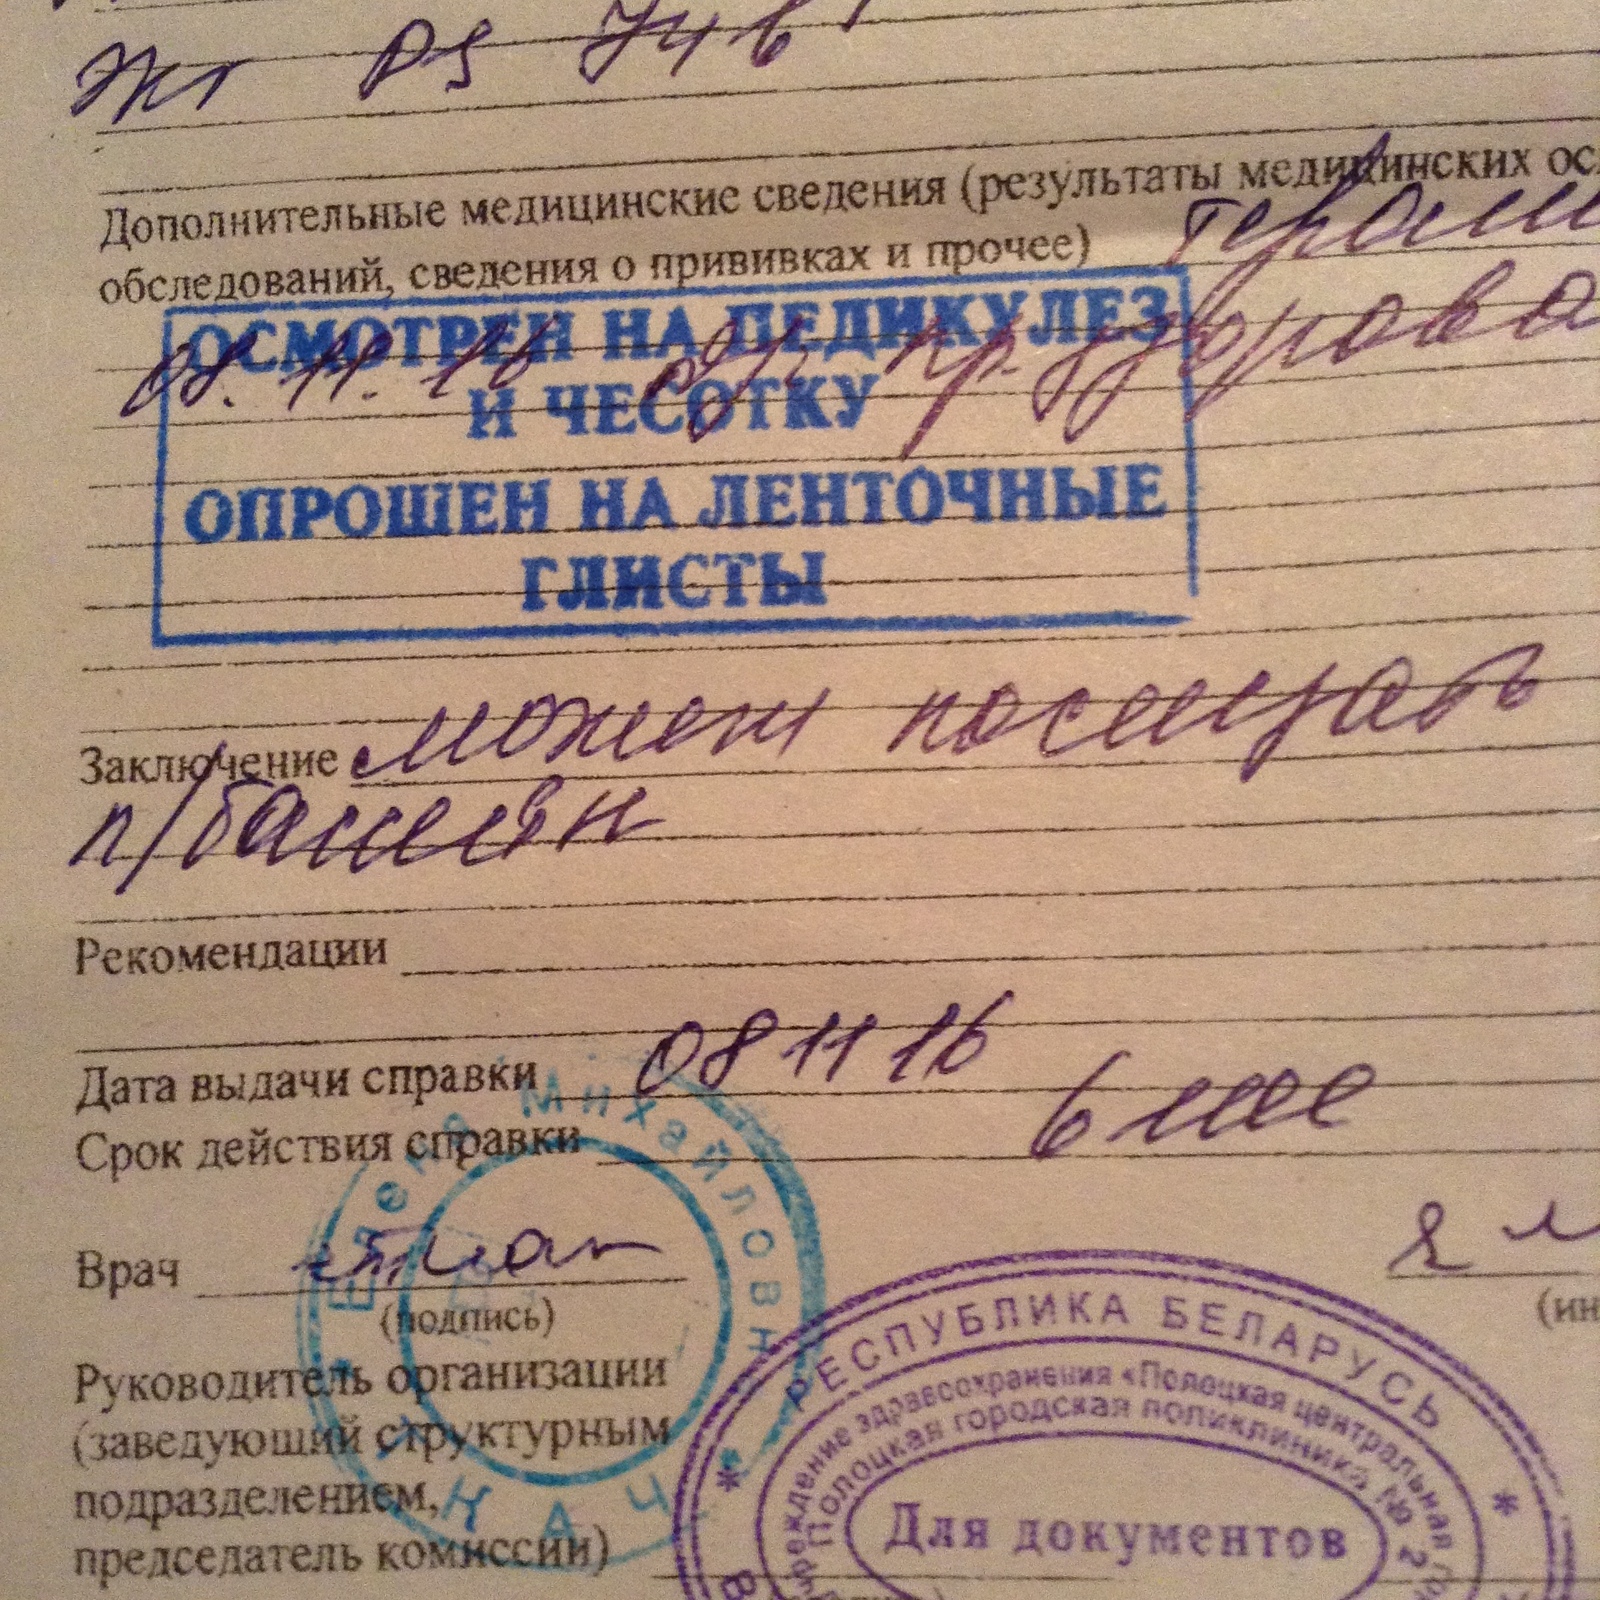 Дополнительные медицинские сведения (результаты медицинских
обследований, сведения о прививках и прочее)
ОСМОТРЕН НА ПЕДИКУЛЕЗ
08.11.16 пр. здорова
И ЧЕСОТКУ
ОПРОШЕН НА ЛЕНТОЧНЫЕ
ГЛИСТЫ
Заключение может посещать
п/бассейн
Рекомендации
Дата выдачи справки 08 11 16
Срок действия справки 6 мес
Врач
(подпись)
Руководитель организации
(заведующий структурным
подразделением,
председатель комиссии)
Елена Михайловн
РЕСПУБЛИКА БЕЛАРУСЬ
здравоохранения «Полоцкая центральная
Полоцкая городская поликлиника № 2
Для документов